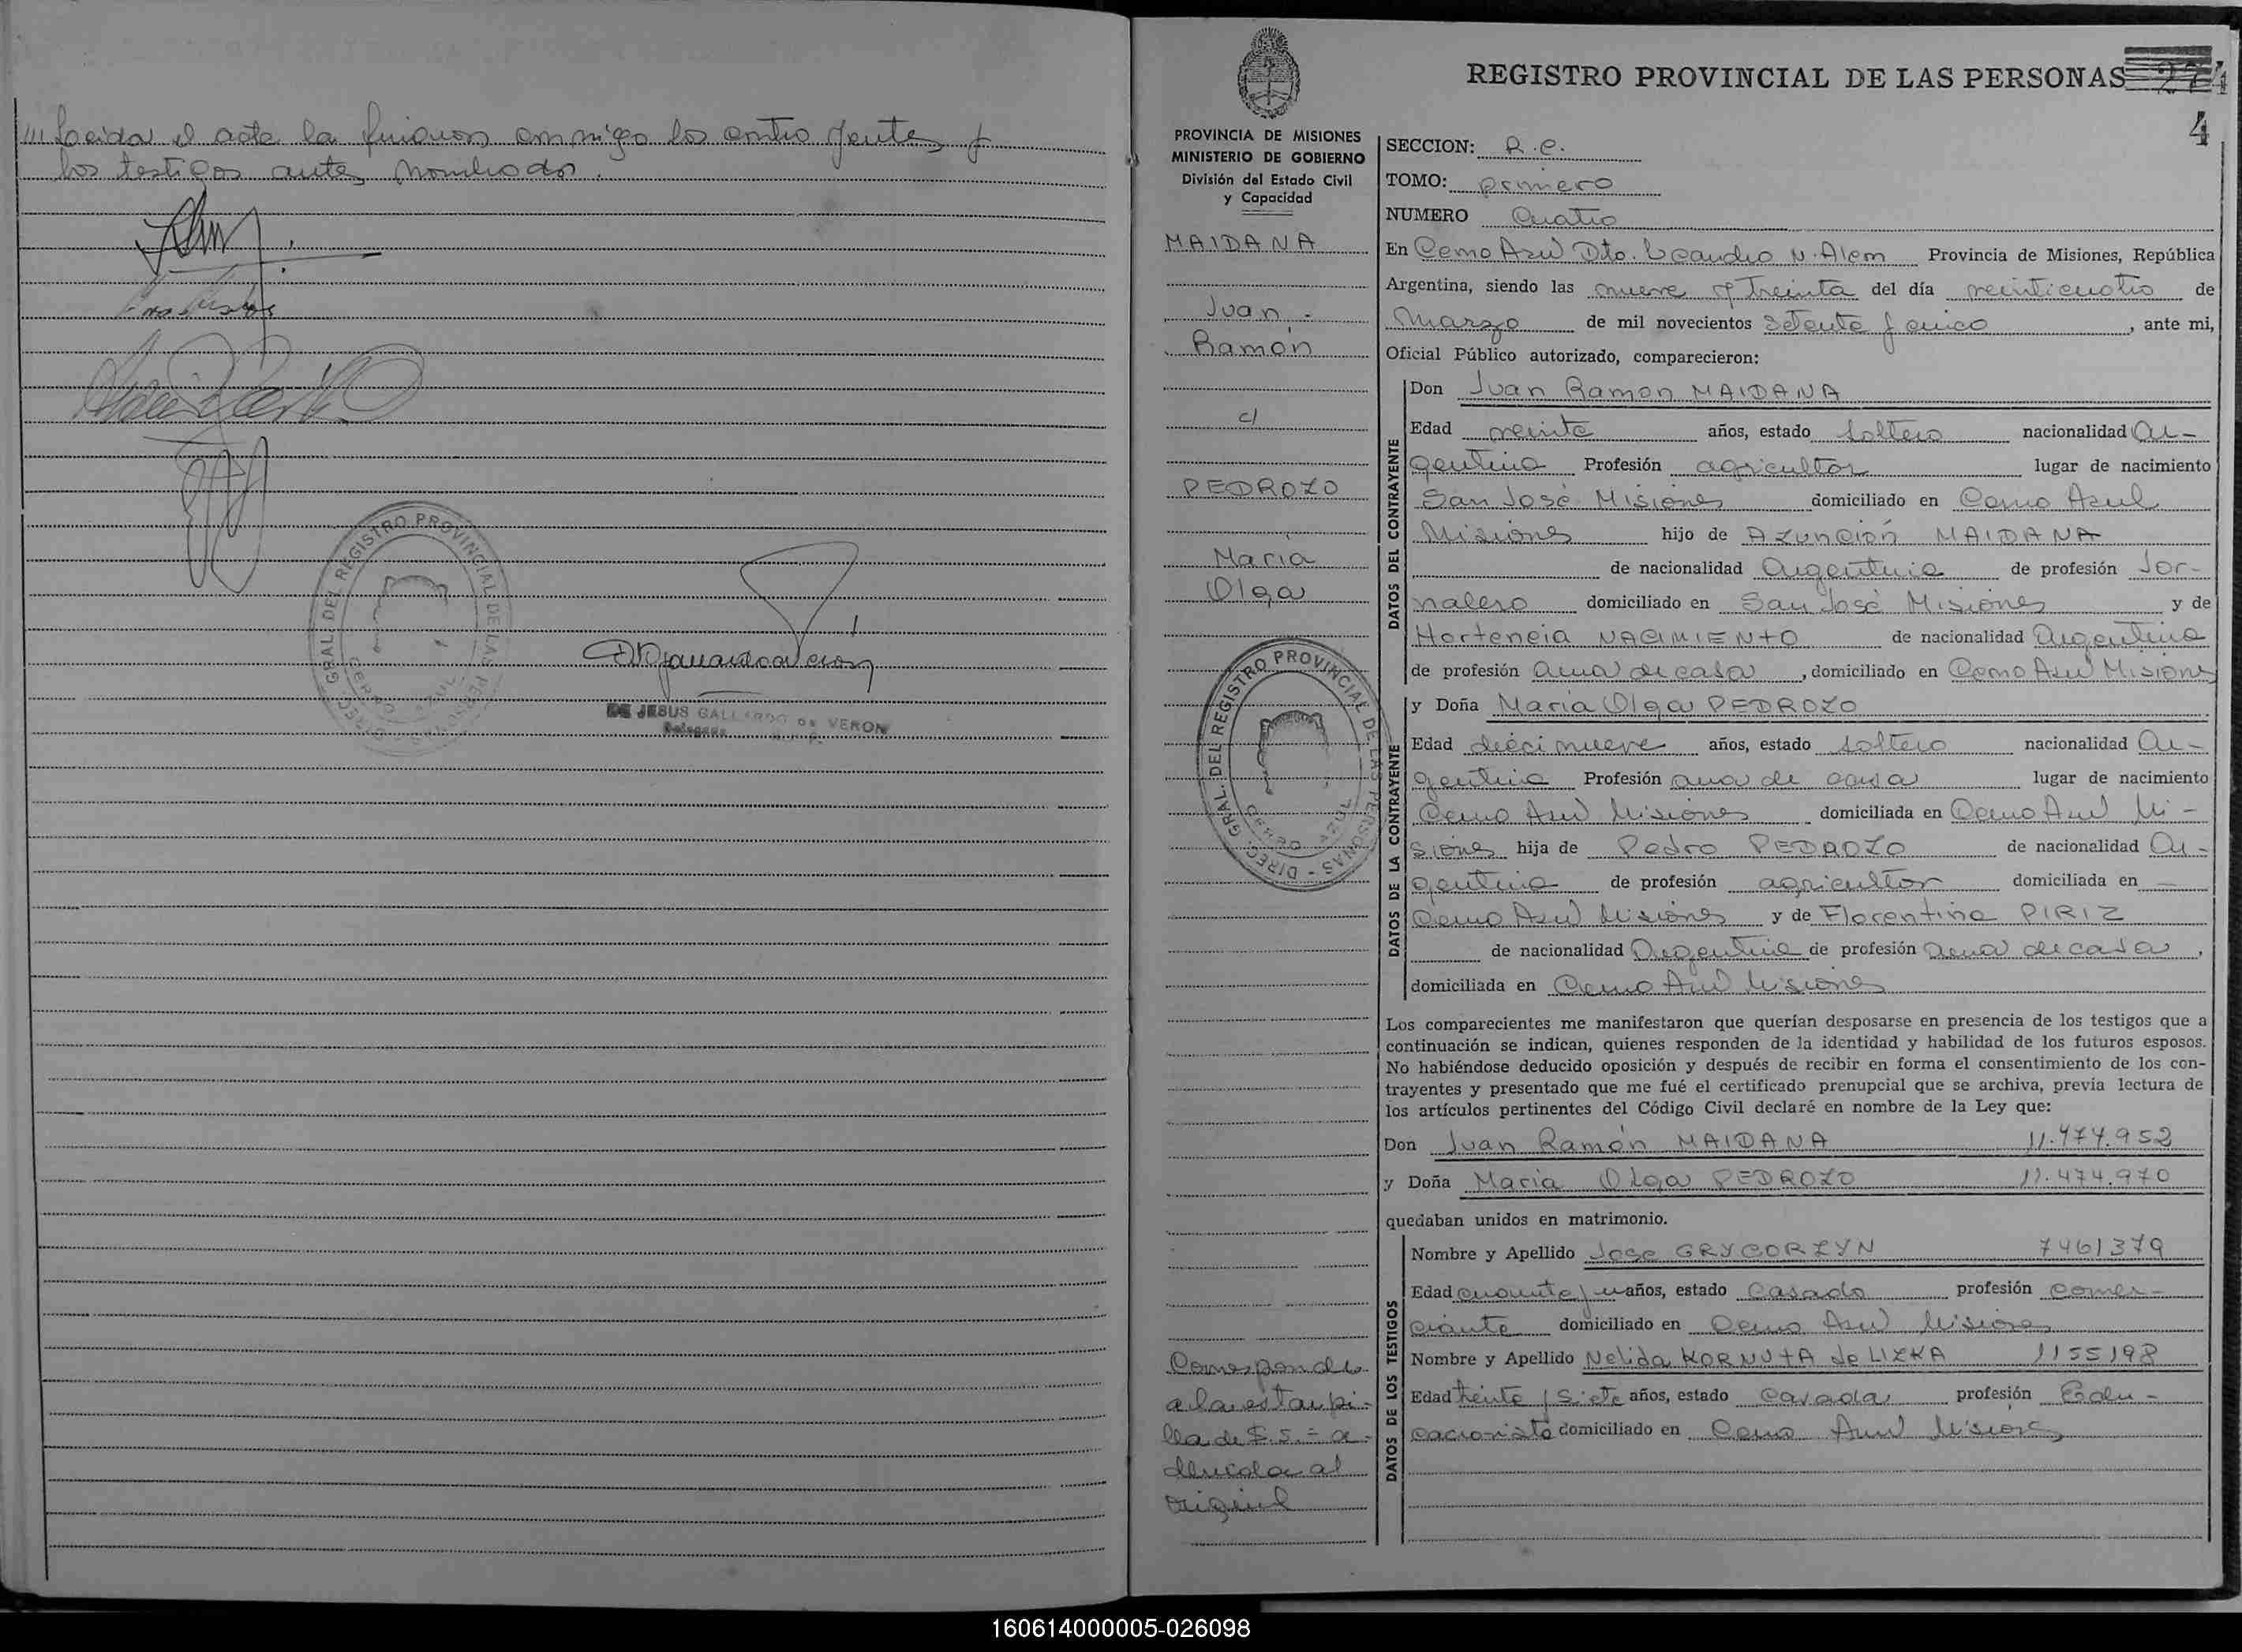 /// Leida el acta la firman conmigo los contrayentes y
los testigos antes nombrados.
DIREC. GRAL. DEL REGISTRO PROVINCIAL DE LAS PERSONAS
CERRO AZUL
DE JESUS GALLARDO DE VERON
Delegada
REGISTRO PROVINCIAL DE LAS PERSONAS 274
4
PROVINCIA DE MISIONES
MINISTERIO DE GOBIERNO
División del Estado Civil
y Capacidad
MAIDANA
Juan
Ramón
c/
PEDROZO
María
Olga
DIREC. GRAL. DEL REGISTRO PROVINCIAL DE LAS PERSONAS
CERRO AZUL
Corresponde
a la estampi-
lla de $.5.= a-
dherida al
original
SECCION: R.C.
TOMO: primero
NUMERO Cuatro
En Cerro Azul Dto. Leandro N. Alem Provincia de Misiones, República
Argentina, siendo las nueve y treinta del día veinticuatro de
Marzo de mil novecientos setenta y cinco, ante mi,
Oficial Público autorizado, comparecieron:
DATOS DEL CONTRAYENTE
Don Juan Ramon MAIDANA
Edad veinte años, estado soltero nacionalidad Ar-
gentina Profesión agricultor lugar de nacimiento
San José Misiones domiciliado en Cerro Azul
Misiones hijo de Azunción MAIDANA
de nacionalidad Argentina de profesión Jor-
nalero domiciliado en San José Misiones y de
Hortencia NACIMIENTO de nacionalidad Argentina
de profesión ama de casa, domiciliado en Cerro Azul Misiones
DATOS DE LA CONTRAYENTE
y Doña María Olga PEDROZO
Edad diecinueve años, estado soltera nacionalidad Ar-
gentina Profesión ama de casa lugar de nacimiento
Cerro Azul Misiones domiciliada en Cerro Azul Mi-
siones hija de Pedro PEDROZO de nacionalidad Ar-
gentina de profesión agricultor domiciliada en —
Cerro Azul Misiones y de Florentina PIRIZ
de nacionalidad Argentina de profesión ama de casa,
domiciliada en Cerro Azul Misiones
Los comparecientes me manifestaron que querían desposarse en presencia de los testigos que a
continuación se indican, quienes responden de la identidad y habilidad de los futuros esposos.
No habiéndose deducido oposición y después de recibir en forma el consentimiento de los con-
trayentes y presentado que me fué el certificado prenupcial que se archiva, previa lectura de
los artículos pertinentes del Código Civil declaré en nombre de la Ley que:
Don Juan Ramón MAIDANA 11.474.952
y Doña María Olga PEDROZO 11.474.970
quedaban unidos en matrimonio.
DATOS DE LOS TESTIGOS
Nombre y Apellido Jose GRYCORZYN 7461379
Edad cuarenta y un años, estado Casado profesión comer-
ciante domiciliado en Cerro Azul Misiones
Nombre y Apellido Nelida KORNUTA de LIZKA 1155198
Edad treinta y siete años, estado casada profesión Edu-
cacionista domiciliado en Cerro Azul Misiones
160614000005-026098